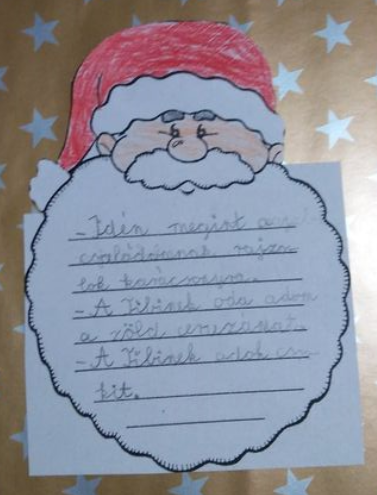 - Idén megint a
családomnak rajzo
lok karácsonyra.
- A Tibinek oda adom
a zöld ceruzámat.
- A Tibinek adok cu
kit.